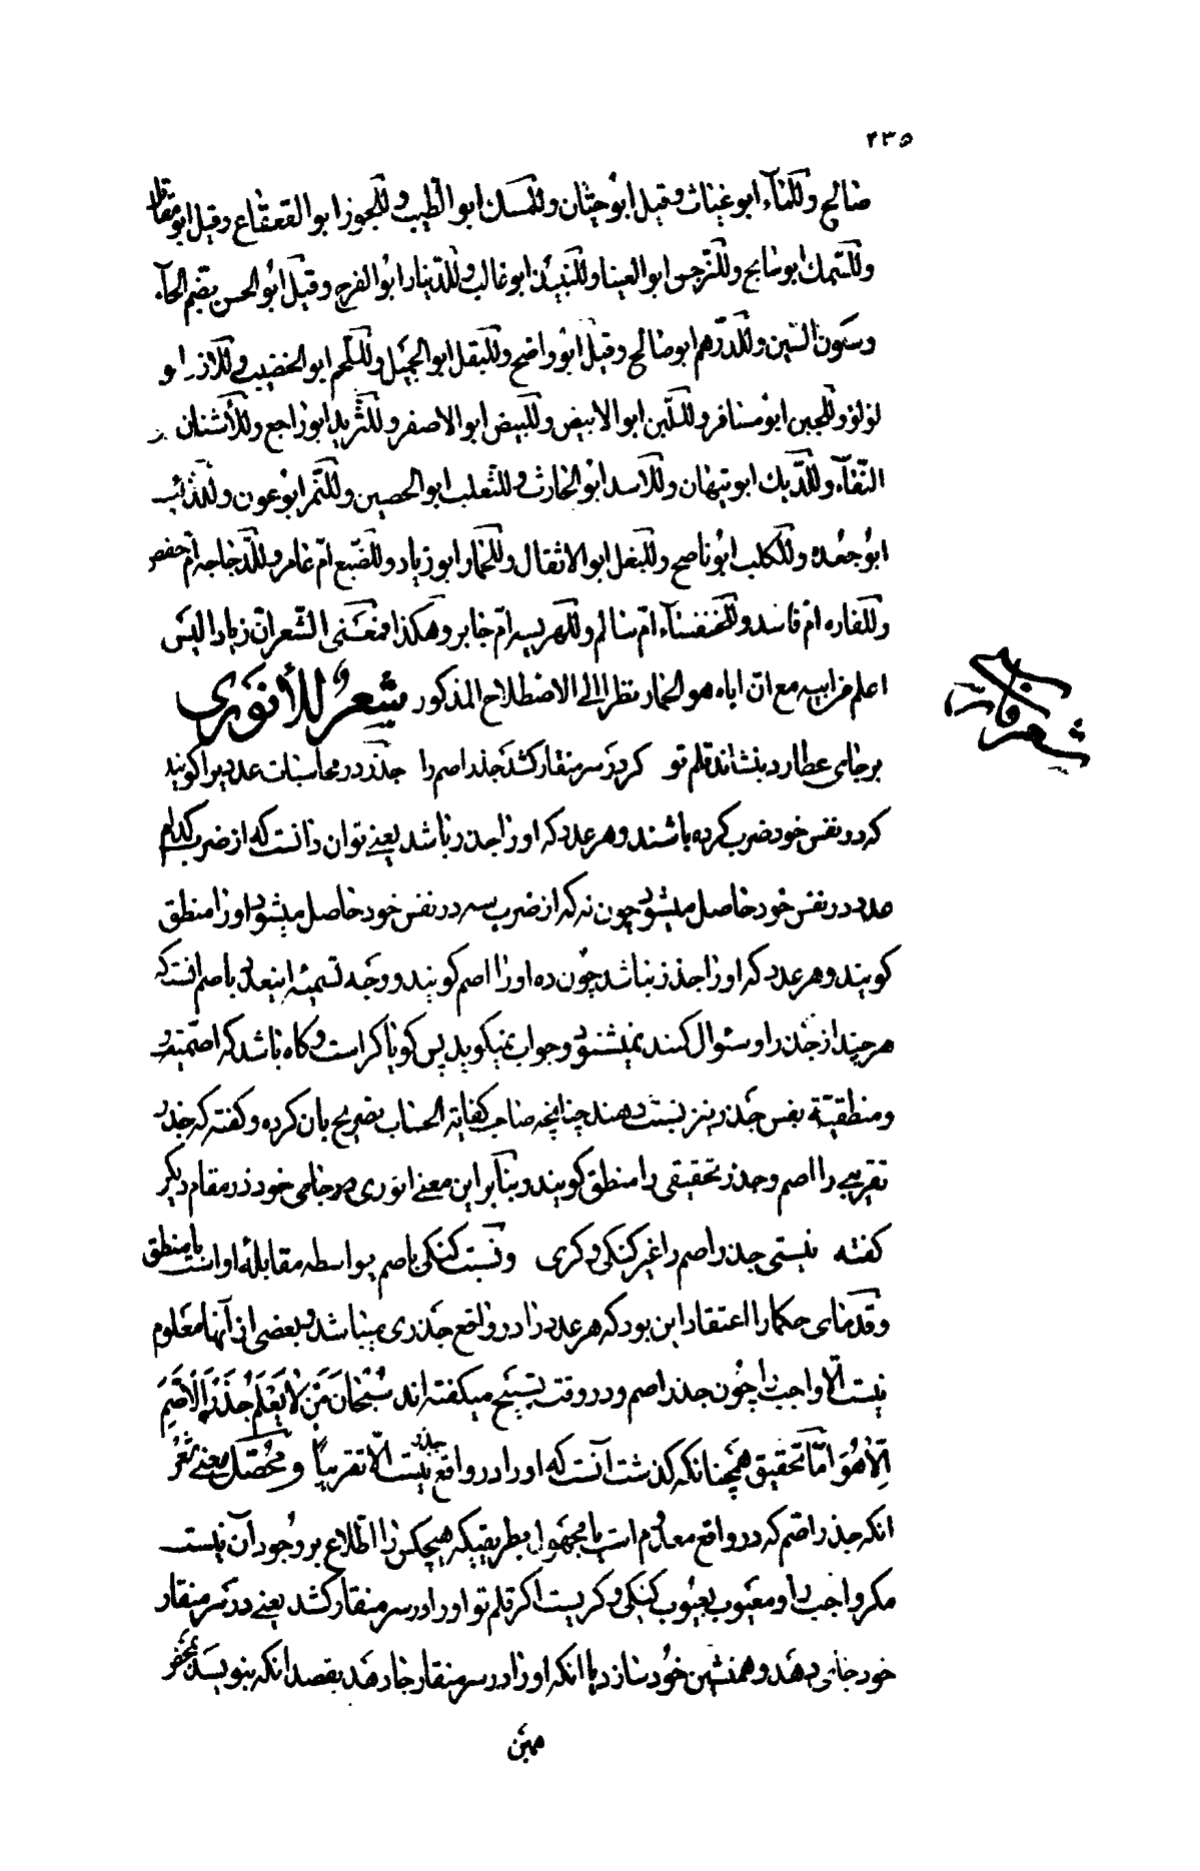 ۲۳۵
صالح وللماء ابو غياث وقيل ابو حيّان وللمسك ابو الطّيب وللجوز ابو القعقاع وقيل ابو مقاتل
وللسّمك ابو سابح وللنّرجس ابو العينا وللنبيذ ابو غالب وللدّينار ابو الفرج وقيل ابو الحسن بضم الحآء
وسكون السّين وللدّرهم ابو صالح وقيل ابو واضح وللبقل ابو الجميل وللّحم ابو الخضيب وللارز ابو
لؤلؤ وللجبن ابو مسافر وللّبن ابو الابيض وللبيض ابو الاصفر وللثّريد ابو راجع وللأشنان
النّقآء وللدّيك ابو نبهان وللاسد ابو الحارث وللثعلب ابو الحصين وللنّمر ابو عون وللذّئب
ابو جعده وللكلب ابو ناصح وللبغل ابو الاثقال وللحمار ابو زياد وللضّبع امّ عامر وللدّجاجه امّ حفص
وللفاره امّ فاسد وللخنفسآء امّ سالم وللهريسه امّ جابر وهكذا فمعنى الشّعر انّ زيادا ليس
اعلم من ابيه مع انّ اباه هو الحمار نظرا الى الاصطلاح المذكور شعر للأنورى
شعر فارسی
بر جاى عطارد بنشاند قلم تو كر در سر منقار كشد جذر اصم را جذر در محاسبات عدديرا كويند
كه در نفس خود ضرب كرده باشند و هر عدد كه او را جذر باشد يعنى توان دانست كه از ضرب كدام
عدد در نفس خود حاصل ميشود چون نه كه از ضرب سه در نفس خود حاصل ميشود او را منطق
كويند و هر عدد كه او را جذر نباشد چون ده او را اصم كويند و وجه تسميه اينعدد باصم آنست كه
هر چند از جذر او سئوال كنند نميشنود و جواب نميكويد پس كويا كر است و كاه باشد كه اصمّيته
و منطقيّة بنفس جذر نيز نسبت دهند چنانچه صاحب كفاية الحساب تصريح بان كرده و كفته كه جذر
تقريبى را اصم و جذر تحقيقى را منطق كويند و بنآ بر اين معنى انورى در جاى خود در مقام ديكر
كفته نيستى جذر اصم را غير كنكى و كرى و نسبت كنكى باصم بواسطه مقابله او است با منطق
و قدماى حكما را اعتقاد اين بود كه هر عدد را در واقع جذرى ميباشد و بعضى از آنها معلوم
نيست الّا واجب را چون جذر اصم و در وقت تسبيح ميكفته اند سُبْحانَ مَنْ لا يَعْلَمُ جَذْرَ الْاَصَمِّ
اِلّا هُوَ امّا تحقيق همچنانكه كذشت آنست كه او را در واقع جذر نيست الّا تقريباً و محصّل معنى شعر
انكه جذر اصم كه در واقع معدوم است يا مجهول بطريقيكه هيچكس را اطّلاع بر وجود آن نيست
مكر واجب را و معيوب بعيوب كنكى و كريست اكر قلم تو او را در سر منقار كشد يعنى در سر منقار
خود جاى دهد و همنشين خود سازد يا انكه او را در سر منقار جا دهد بقصد انكه بنويسد بمحض
همين